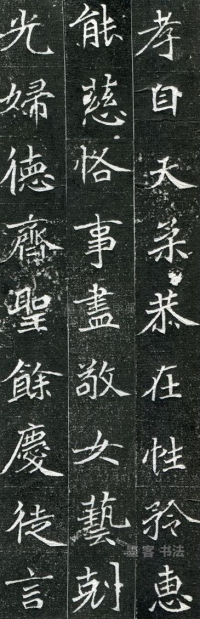 孝自天柔恭在性矜惠
能慈恪事盡敬女藝剋
光婦德齊聖餘慶徒言
墨客 书法